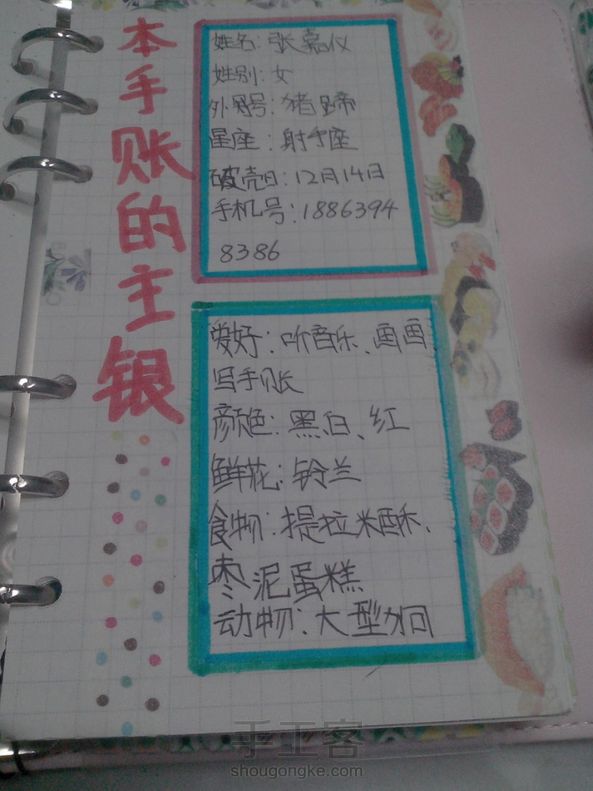 本手账的主银
姓名:张嘉仪
姓别:女
外号:猪蹄
星座:射手座
破壳日:12月14日
手机号:1886394
8386
爱好:听音乐、画画
写手账
颜色:黑白、红
鲜花:铃兰
食物:提拉米酥、
枣泥蛋糕
动物:大型
手工客
shougongke.com